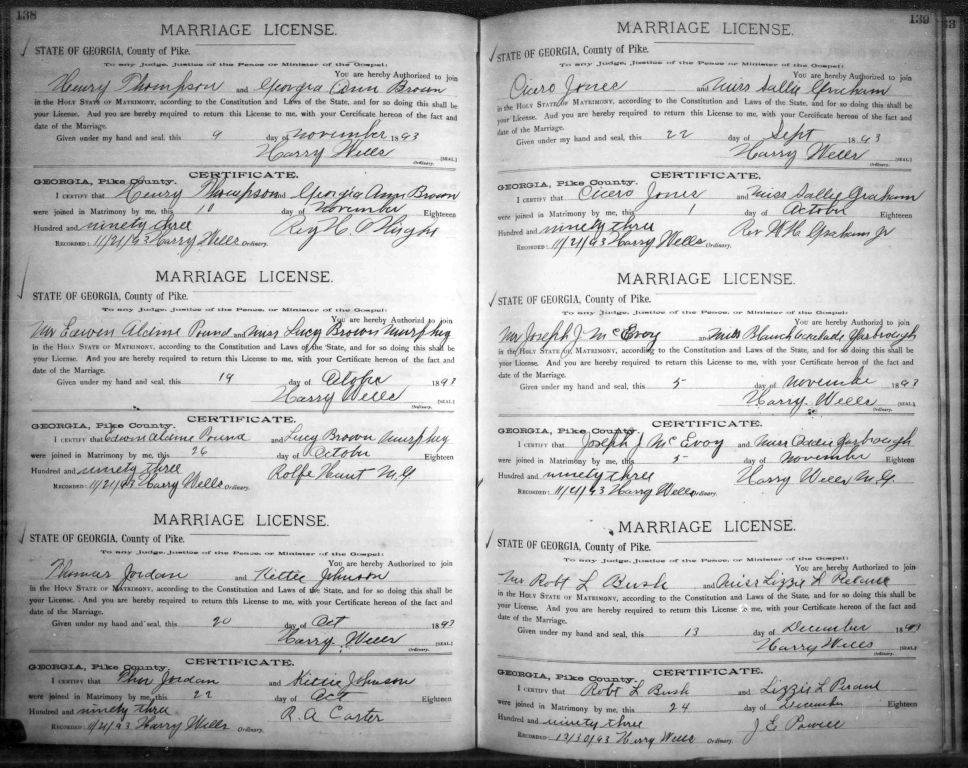 138
MARRIAGE LICENSE.
STATE OF GEORGIA, County of Pike.
To any Judge, Justice of the Peace or Minister of the Gospel:
You are hereby Authorized to join
Henry Thompson and Georgia Ann Brown
in the Holy State of Matrimony, according to the Constitution and Laws of the State, and for so doing this shall be
your License. And you are hereby required to return this License to me, with your Certificate hereon of the fact and
date of the Marriage.
Given under my hand and seal, this 9 day of November 1893
Harry Wells [SEAL.]
Ordinary.
CERTIFICATE.
GEORGIA, Pike County.
I certify that Henry Thompson and Georgia Ann Brown
were joined in Matrimony by me, this 10 day of November Eighteen
Hundred and ninety three Rev H C
Recorded: 11/21/93 Harry Wells Ordinary.
MARRIAGE LICENSE.
STATE OF GEORGIA, County of Pike.
To any Judge, Justice of the Peace, or Minister of the Gospel:
You are hereby Authorized to join
Mr Edwin Alcime Pound and Miss Lucy Brown Murphey
in the Holy State of Matrimony, according to the Constitution and Laws of the State, and for so doing this shall be
your License. And you are hereby required to return this License to me, with your Certificate hereon of the fact and
date of the Marriage.
Given under my hand and seal, this 19 day of Octobr 1893
Harry Wells [SEAL.]
Ordinary.
CERTIFICATE.
GEORGIA, Pike County.
I certify that Edwin Alcime Pound and Lucy Brown Murphey
were joined in Matrimony by me, this 26 day of Octobr Eighteen
Hundred and ninety three Rolfe Hunt M.G.
Recorded: 11/21/93 Harry Wells Ordinary.
MARRIAGE LICENSE.
STATE OF GEORGIA, County of Pike.
To any Judge, Justice of the Peace, or Minister of the Gospel:
You are hereby Authorized to join
Thomas Jordan and Kittie Johnson
in the Holy State of Matrimony, according to the Constitution and Laws of the State, and for so doing this shall be
your License. And you are hereby required to return this License to me, with your Certificate hereon of the fact and
date of the Marriage.
Given under my hand and seal, this 20 day of Oct 1893
Harry Wells [SEAL.]
Ordinary.
CERTIFICATE.
GEORGIA, Pike County.
I certify that Thos Jordan and Kittie Johnson
were joined in Matrimony by me, this 22 day of Oct Eighteen
Hundred and ninety three R. A Carter
Recorded: 11/21/93 Harry Wells Ordinary.
139
MARRIAGE LICENSE.
STATE OF GEORGIA, County of Pike.
To any Judge, Justice of the Peace or Minister of the Gospel:
You are hereby Authorized to join
Cicero Jones and Miss Sally Graham
in the Holy State of Matrimony, according to the Constitution and Laws of the State, and for so doing this shall be
your License. And you are hereby required to return this License to me, with your Certificate hereon of the fact and
date of the Marriage.
Given under my hand and seal, this 22 day of Sept 1893
Harry Wells [SEAL.]
Ordinary.
CERTIFICATE.
GEORGIA, Pike County.
I certify that Cicero Jones and Miss Sally Graham
were joined in Matrimony by me, this 1 day of Octobr Eighteen
Hundred and ninety three Rev W H Graham Jr
Recorded: 11/21/93 Harry Wells Ordinary.
MARRIAGE LICENSE.
STATE OF GEORGIA, County of Pike.
To any Judge, Justice of the Peace, or Minister of the Gospel:
You are hereby Authorized to join
Mr Joseph J. McEvoy and Miss Blanch Yarbrough
in the Holy State of Matrimony, according to the Constitution and Laws of the State, and for so doing this shall be
your License. And you are hereby required to return this License to me, with your Certificate hereon of the fact and
date of the Marriage.
Given under my hand and seal, this 5 day of November 1893
Harry Wells [SEAL.]
Ordinary.
CERTIFICATE.
GEORGIA, Pike County.
I certify that Joseph J McEvoy and Miss Yarbrough
were joined in Matrimony by me, this 5 day of November Eighteen
Hundred and ninety three Harry Wells M.G.
Recorded: 11/21/93 Harry Wells Ordinary.
MARRIAGE LICENSE.
STATE OF GEORGIA, County of Pike.
To any Judge, Justice of the Peace, or Minister of the Gospel:
You are hereby Authorized to join
Mr Robt L Bush and Miss Lizzie L
in the Holy State of Matrimony, according to the Constitution and Laws of the State, and for so doing this shall be
your License. And you are hereby required to return this License to me, with your Certificate hereon of the fact and
date of the Marriage.
Given under my hand and seal, this 13 day of December 1893
Harry Wells [SEAL.]
Ordinary.
CERTIFICATE.
GEORGIA, Pike County.
I certify that Robt L Bush and Lizzie L
were joined in Matrimony by me, this 24 day of December Eighteen
Hundred and ninety three J E Powell
Recorded: 12/30/93 Harry Wells Ordinary.